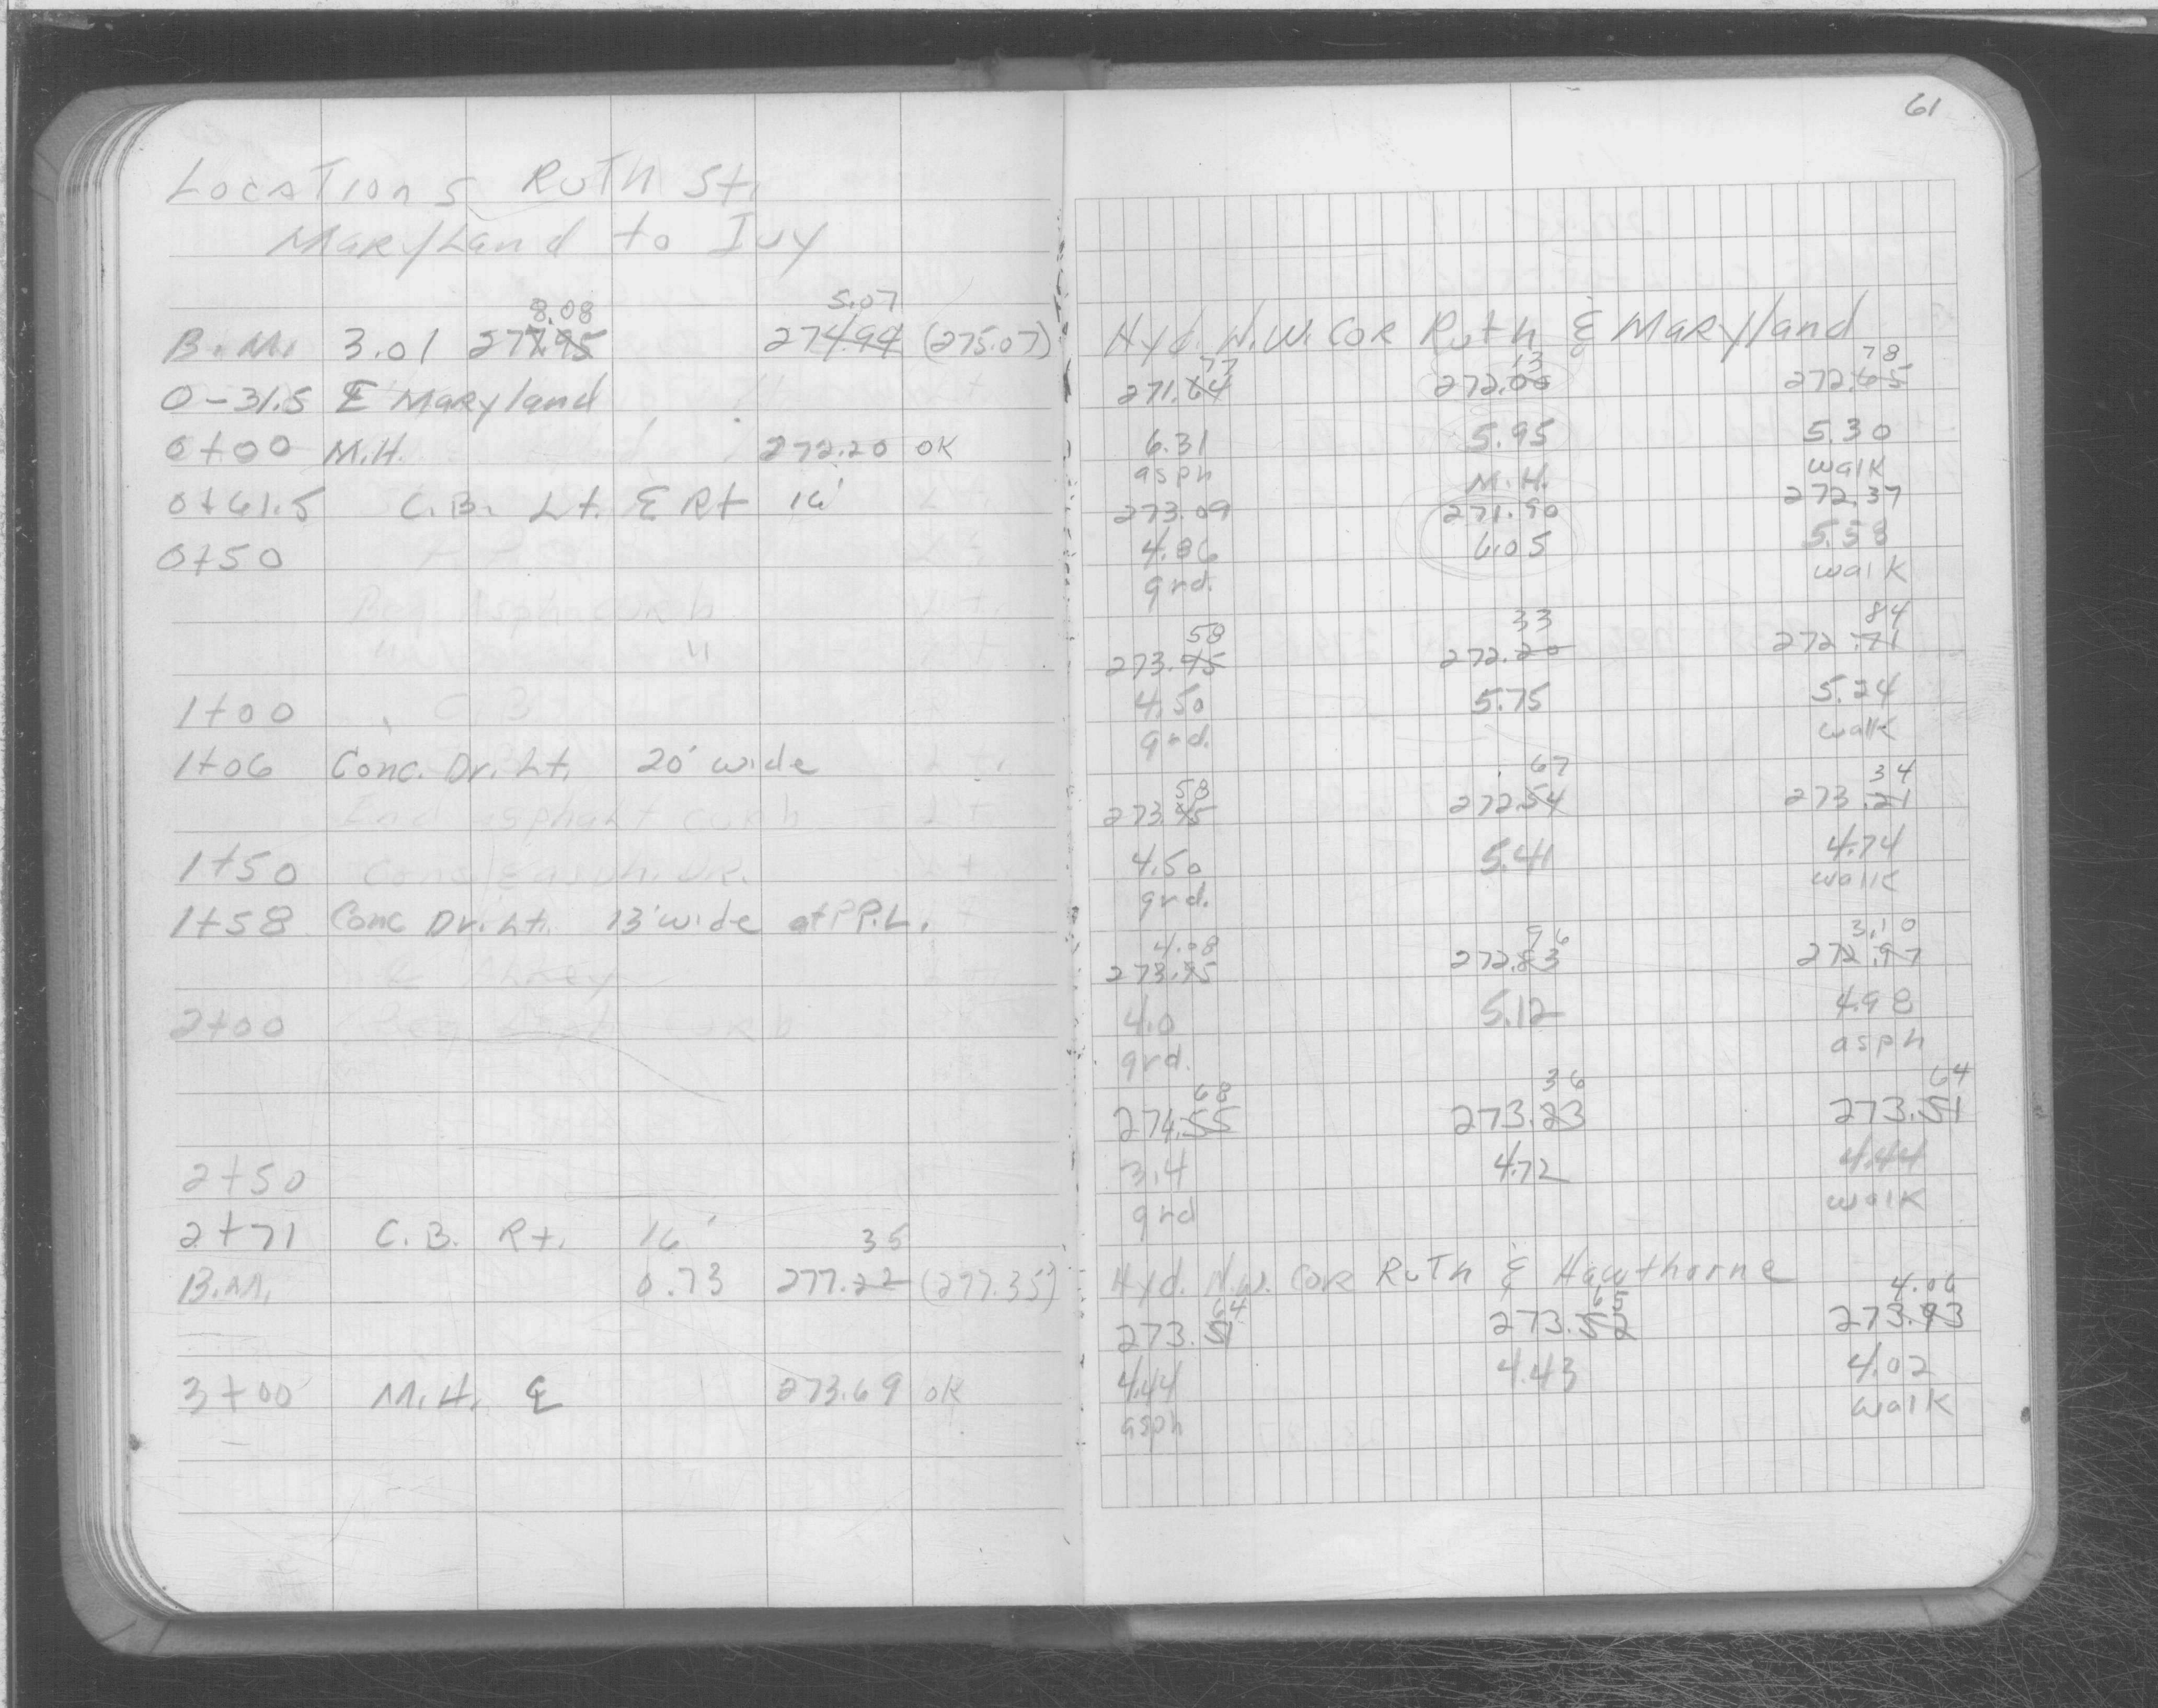 61
Locations Ruth St.
Maryland to Ivy
8.08 5.07
B.M. 3.01 277.95 274.94 (275.07)
0-31.5 ℄ Maryland
0+00 M.H. 272.20 OK
0+61.5 C.B. Lt. & Rt 16'
0+50
Beg Asph curb
" "
1+00 C.B
1+06 Conc. Dr. Lt. 20' wide
End asphalt curb Lt.
1+50
1+58 Conc Dr. Lt. 13' wide at P.L.
2+00
2+50
2+71 C.B. Rt. 16'
35
B.M. 0.73 277.22 (277.35)
3+00 M.H. ℄ 273.69 OK
Hyd. N.W. COR Ruth & Maryland
77 13 78
271.64 272.00 272.65
6.31 5.95 5.30
asph M.H. walk
273.09 271.90 272.37
4.86 6.05 5.58
grd. walk
58 33 84
273.45 272.20 272.71
4.50 5.75 5.24
grd. walk
58 67 34
273.45 272.54 273.21
4.50 5.41 4.74
grd. walk
4.08 96 3.10
273.95 272.83 272.97
4.0 5.12 4.98
grd. asph
68 36 64
274.55 273.23 273.51
3.4 4.72 4.44
grd walk
Hyd. N.W. COR Ruth & Hawthorne
64 65 4.06
273.51 273.52 273.93
4.44 4.43 4.02
asph walk